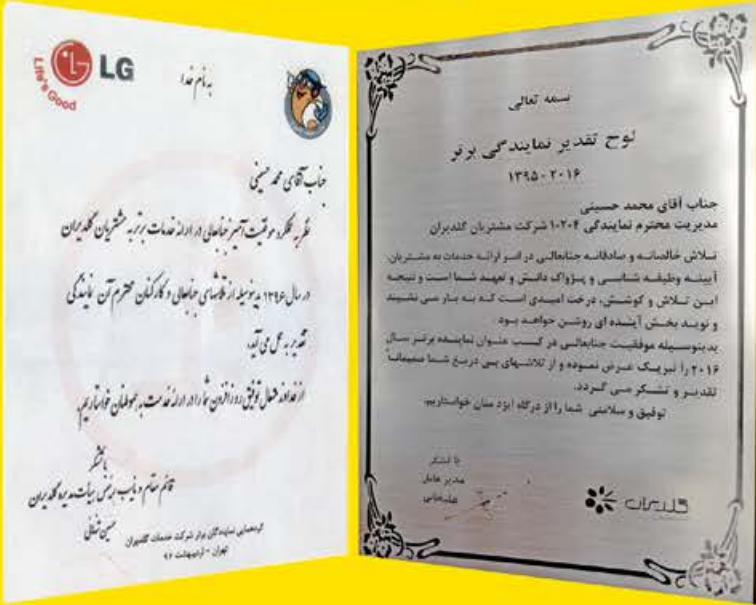 LG
Life's Good
به نام خدا
جناب آقای محمد حسینی
نظر به عملکرد موفقیت آمیز جنابعالی در ارائه خدمات برتر به مشتریان گلدیران
در سال ۱۳۹۶ بدینوسیله از تلاشهای جنابعالی و کارکنان محترم آن نمایندگی
تقدیر به عمل می آید.
از خداوند متعال توفیق روزافزون شما را در ارائه خدمت به هموطنان خواستاریم.
با تشکر
قائم مقام و نایب رئیس هیأت مدیره گلدیران
گردهمایی نمایندگان برتر شرکت خدمات گلدیران
تهران - اردیبهشت ۹۷
بسمه تعالی
لوح تقدیر نمایندگی برتر
۱۳۹۵-۲۰۱۶
جناب آقای محمد حسینی
مدیریت محترم نمایندگی ۱۰۲۰۴ شرکت مشتریان گلدیران
تلاش خالصانه و صادقانه جنابعالی در امر ارائه خدمات به مشتریان،
آیینه وظیفه شناسی و پژواک دانش و تعهد شما است و نتیجه
این تلاش و کوشش، درخت امیدی است که به بار می نشیند
و نوید بخش آینده ای روشن خواهد بود
بدینوسیله موفقیت جنابعالی در کسب عنوان نماینده برتر سال
۲۰۱۶ را تبریک عرض نموده و از تلاشهای بی دریغ شما صمیمانه
تقدیر و تشکر می گردد.
توفیق و سلامتی شما را از درگاه ایزد منان خواستاریم.
با تشکر
مدیر عامل
گلدیران